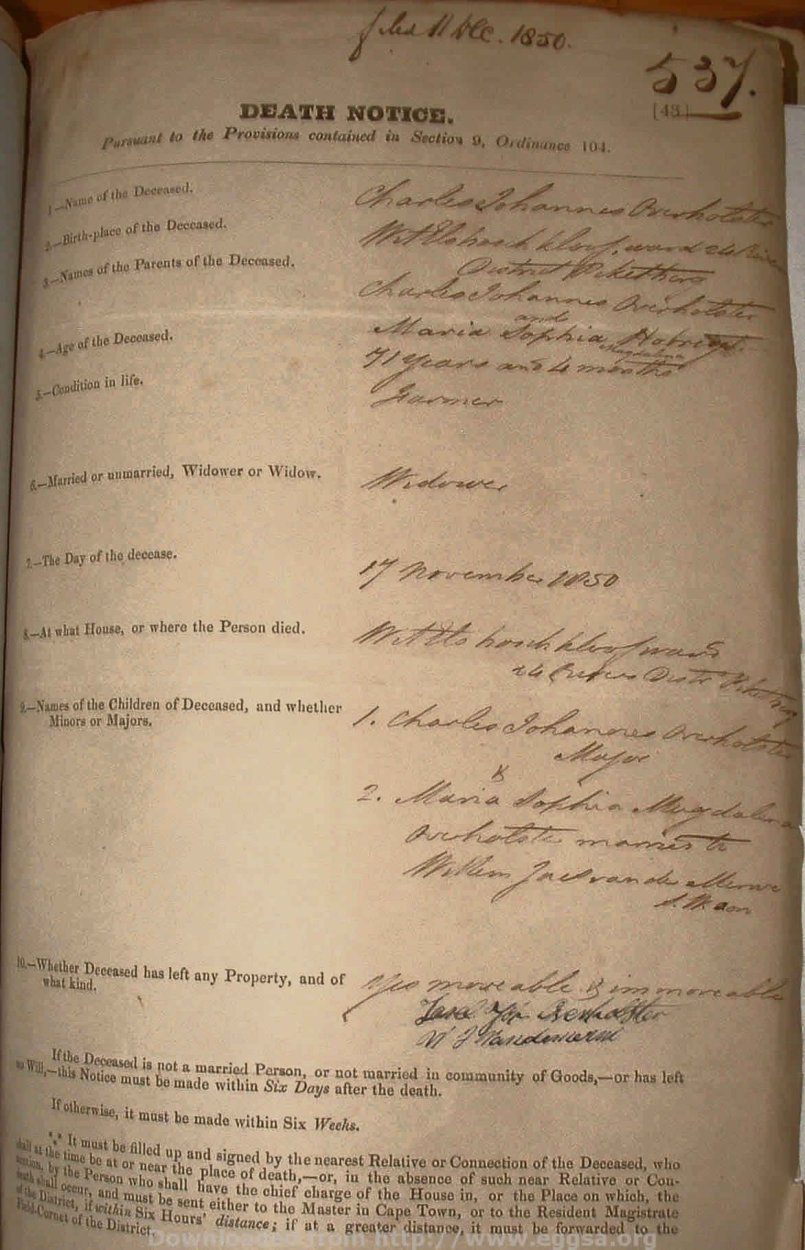 filed 11 Dec. 1850.
537.
[43]
DEATH NOTICE.
Pursuant to the Provisions contained in Section 9, Ordinance 104.
1.—Name of the Deceased. Charles Johannes Overholster
2.—Birth-place of the Deceased. Wittebosch kloof, ward 24 River
District Piketberg
3.—Names of the Parents of the Deceased. Charles Johannes Overholster
and
Maria Sophia
Magdalena
4.—Age of the Deceased. 71 years and 4 months
5.—Condition in life. Farmer
6.—Married or unmarried, Widower or Widow. Widower
7.—The Day of the decease. 17 November 1850
8.—At what House, or where the Person died. kloof ward
24 Rivers Distr
9.—Names of the Children of Deceased, and whether
Minors or Majors.
1. Charles Johannes Overholster
Major
&
2. Maria Sophia Magdalena
Overholster married to
Willem van der Merwe
10.—Whether Deceased has left any Property, and of
what kind.
Yes moveable & immoveable
If the Deceased is not a married Person, or not married in community of Goods,—or has left
no Will,—this Notice must be made within Six Days after the death.
If otherwise, it must be made within Six Weeks.
*** It must be filled up and signed by the nearest Relative or Connection of the Deceased, who
shall at the time be at or near the place of death,—or, in the absence of such near Relative or Con-
nection, by the Person who shall have the chief charge of the House in, or the Place on which, the
death shall occur, and must be sent either to the Master in Cape Town, or to the Resident Magistrate
of the District, if within Six Hours' distance; if at a greater distance, it must be forwarded to the
Field-Cornet of the District.
Downloaded from http://www.eggsa.org